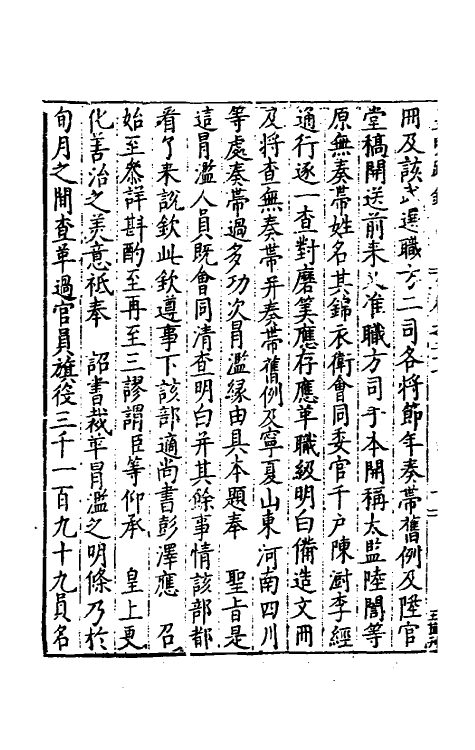 冊及該武選職方二司各將節年奏帶舊例及陞官
堂稿開送前来又准職方司手本開稱太監陸誾等
原無奏帶姓名其錦衣衛會同委官千户陳㕑李經
通行逐一查對磨筭應存應革職級明白備造文冊
及將查無奏帶并奏帶舊例及寧夏山東河南四川
等處奏帶過多功次冒濫緣由具本題奉　聖旨是
這冒濫人員既會同清查明白并其餘事情該部都
看了来說欽此欽遵事下該部適尚書彭澤應　召
始至叅詳斟酌至再至三謬謂臣等仰承　皇上更
化善治之美意祗奉　詔書裁革冒濫之明條乃於
旬月之間查革過官員旗役三千一百九十九員名